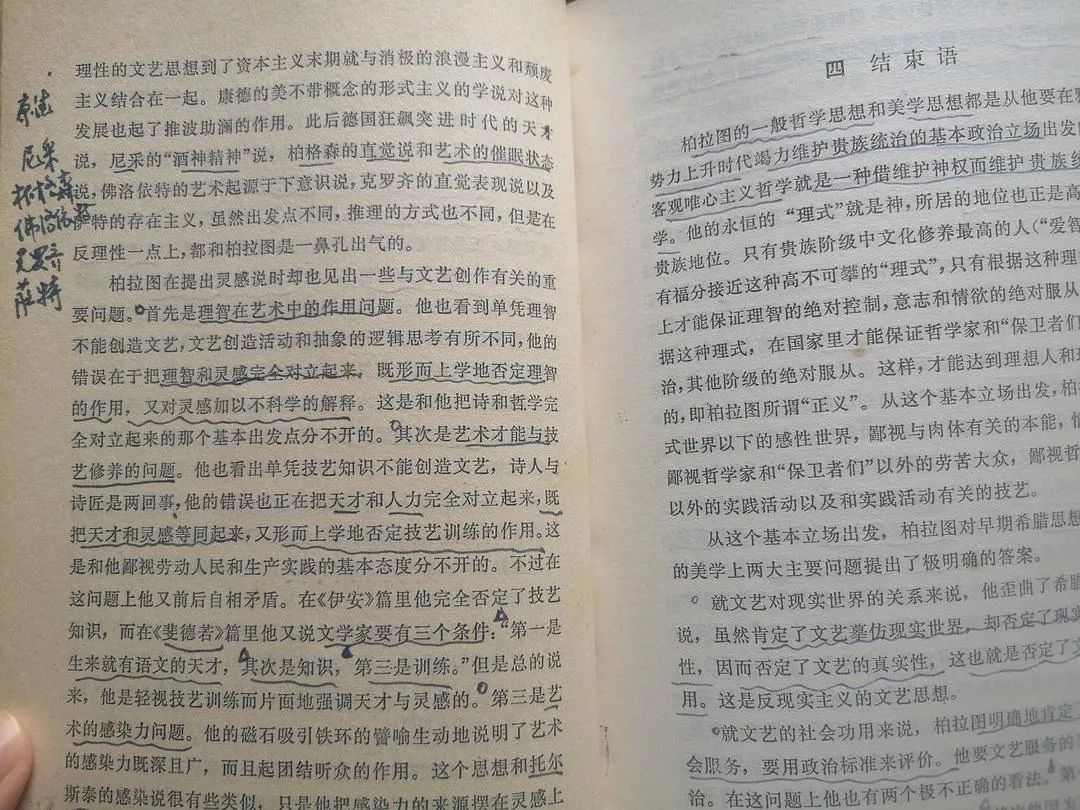 康德
尼采
柏格森
佛洛依特
克罗齐
萨特
理性的文艺思想到了资本主义末期就与消极的浪漫主义和颓废
主义结合在一起。康德的美不带概念的形式主义的学说对这种
发展也起了推波助澜的作用。此后德国狂飙突进时代的天才
说，尼采的“酒神精神”说，柏格森的直觉说和艺术的催眠状态
说，佛洛依特的艺术起源于下意识说，克罗齐的直觉表现说以及
萨特的存在主义，虽然出发点不同，推理的方式也不同，但是在
反理性一点上，都和柏拉图是一鼻孔出气的。
柏拉图在提出灵感说时却也见出一些与文艺创作有关的重
要问题。首先是理智在艺术中的作用问题。他也看到单凭理智
不能创造文艺，文艺创造活动和抽象的逻辑思考有所不同，他的
错误在于把理智和灵感完全对立起来，既形而上学地否定理智
的作用，又对灵感加以不科学的解释。这是和他把诗和哲学完
全对立起来的那个基本出发点分不开的。其次是艺术才能与技
艺修养的问题。他也看出单凭技艺知识不能创造文艺，诗人与
诗匠是两回事，他的错误也正在把天才和人力完全对立起来，既
把天才和灵感等同起来，又形而上学地否定技艺训练的作用。这
是和他鄙视劳动人民和生产实践的基本态度分不开的。不过在
这问题上他又前后自相矛盾。在《伊安》篇里他完全否定了技艺
知识，而在《斐德若》篇里他又说文学家要有三个条件：“第一是
生来就有语文的天才，其次是知识，第三是训练。”但是总的说
来，他是轻视技艺训练而片面地强调天才与灵感的。第三是艺
术的感染力问题。他的磁石吸引铁环的譬喻生动地说明了艺术
的感染力既深且广，而且起团结听众的作用。这个思想和托尔
斯泰的感染说很有些类似，只是他把感染力的来源摆在灵感上
四 结束语
柏拉图的一般哲学思想和美学思想都是从他要在
势力上升时代竭力维护贵族统治的基本政治立场出发
客观唯心主义哲学就是一种借维护神权而维护贵族
学。他的永恒的“理式”就是神，所居的地位也正是高
贵族地位。只有贵族阶级中文化修养最高的人（“爱智
有福分接近这种高不可攀的“理式”，只有根据这种理
上才能保证理智的绝对控制，意志和情欲的绝对服从
据这种理式，在国家里才能保证哲学家和“保卫者们”
治，其他阶级的绝对服从。这样，才能达到理想人和
的，即柏拉图所谓“正义”。从这个基本立场出发，柏拉
式世界以下的感性世界，鄙视与肉体有关的本能，
鄙视哲学家和“保卫者们”以外的劳苦大众，鄙视
以外的实践活动以及和实践活动有关的技艺。
从这个基本立场出发，柏拉图对早期希腊思想
的美学上两大主要问题提出了极明确的答案。
就文艺对现实世界的关系来说，他歪曲了希腊
说，虽然肯定了文艺摹仿现实世界，却否定了现实
性，因而否定了文艺的真实性，这也就是否定了文
用。这是反现实主义的文艺思想。
就文艺的社会功用来说，柏拉图明确地肯定
会服务，要用政治标准来评价。他要文艺服务的
治。在这问题上他也有两个极不正确的看法。第